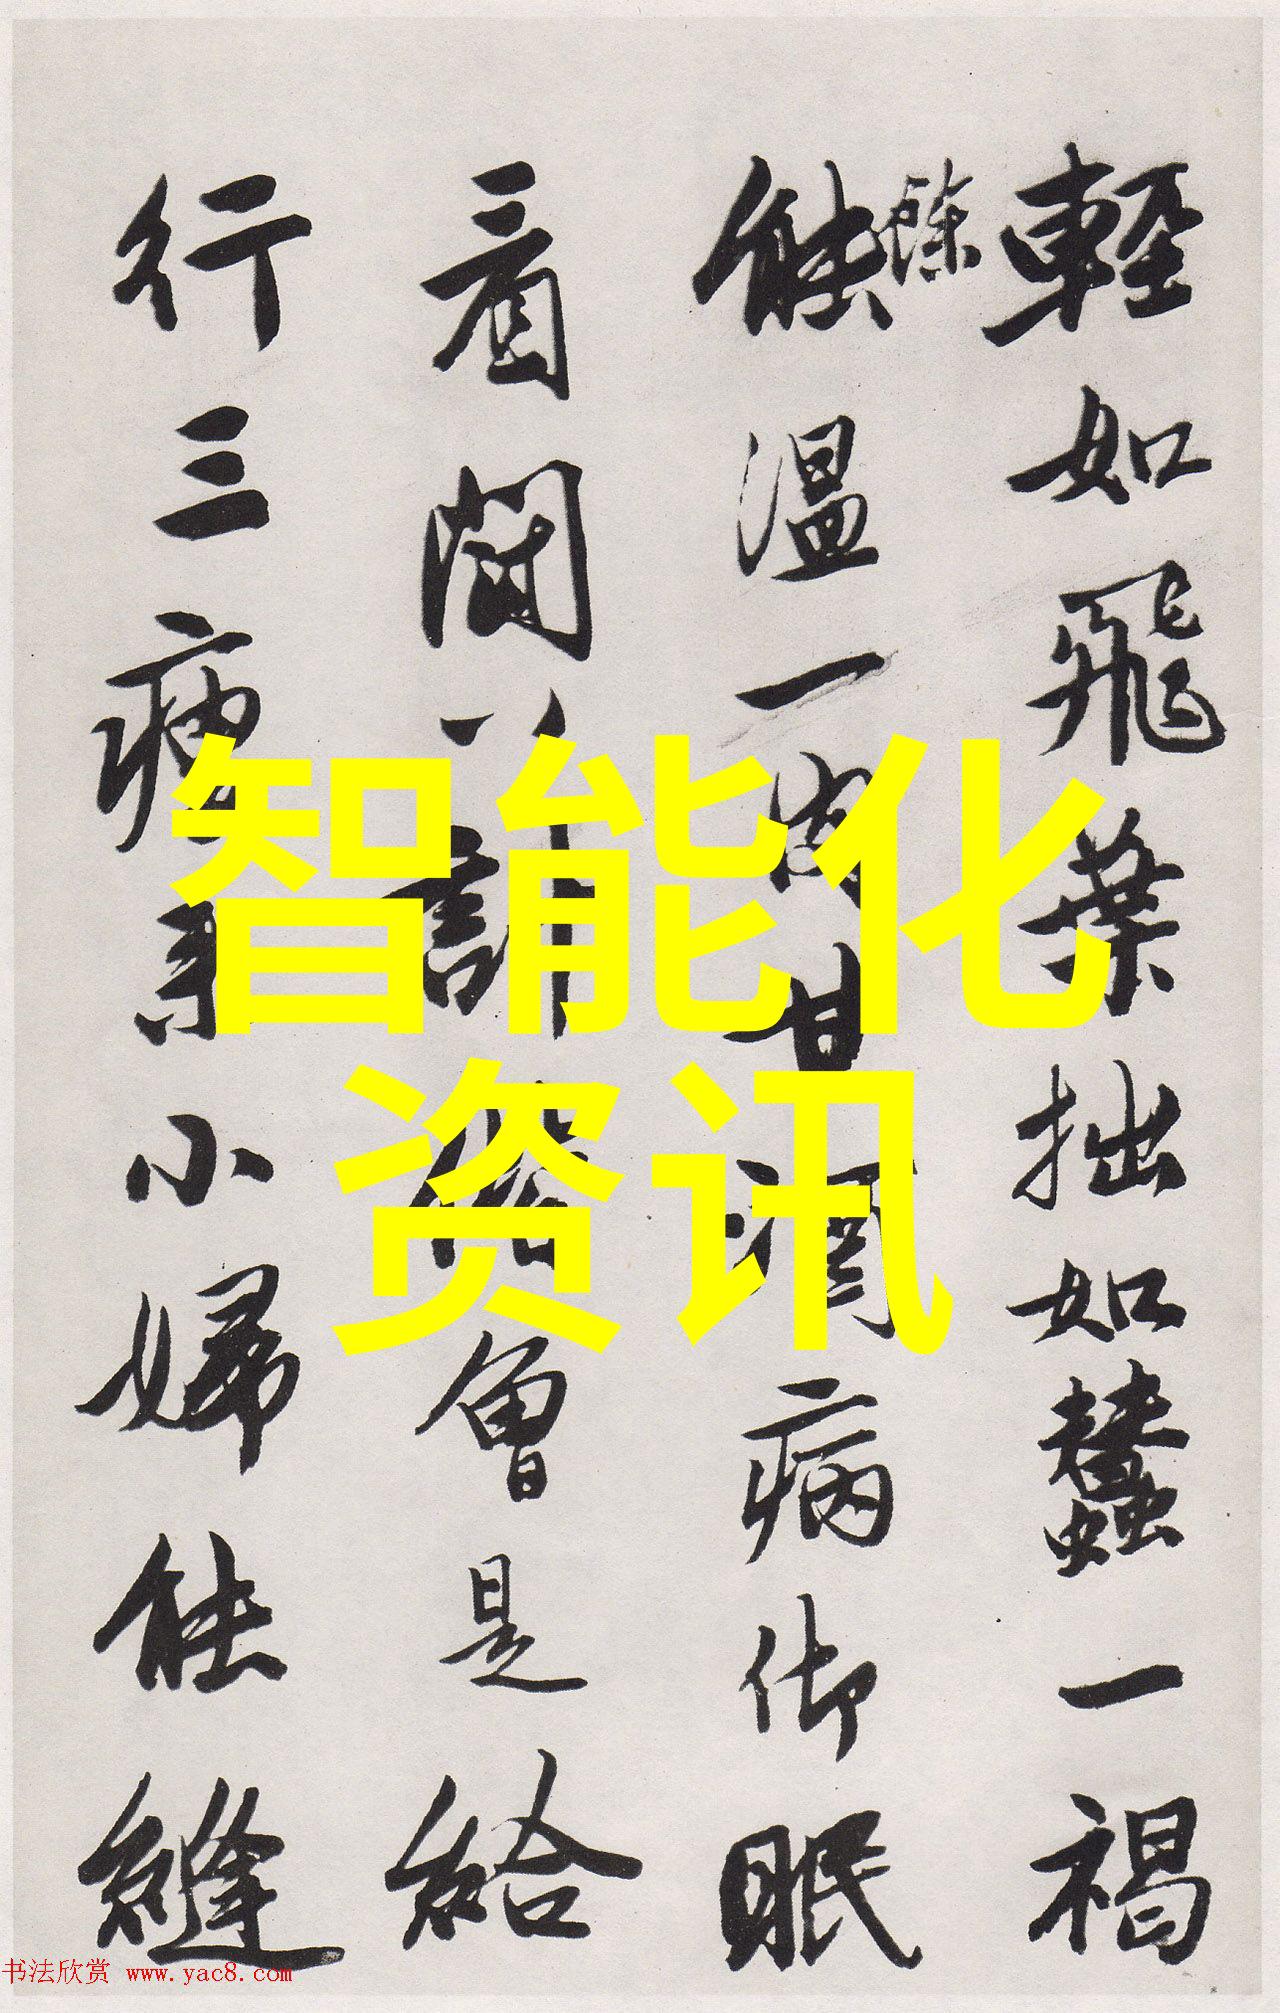 輕如飛葉拙如蠶一褐
餘
能溫一肉甘
病御眠
看鬪
會是給
行三
小婦能縫
智能化
资讯
书法欣赏 www.yac8.com